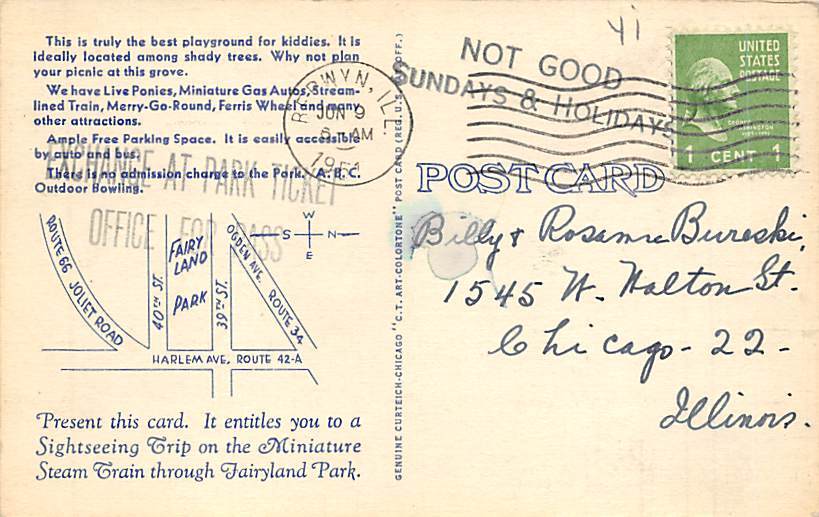 This is truly the best playground for kiddies. It is
ideally located among shady trees. Why not plan
your picnic at this grove.
We have Live Ponies, Miniature Gas Autos, Stream-
lined Train, Merry-Go-Round, Ferris Wheel and many
other attractions.
Ample Free Parking Space. It is easily accessible
by auto and bus.
There is no admission charge to the Park. A. B. C.
Outdoor Bowling.
EXCHANGE AT PARK TICKET
OFFICE FOR PASS
ROUTE 66 JOLIET ROAD
40TH ST.
FAIRY
LAND
PARK
39TH ST.
OGDEN AVE. ROUTE 34
W
S N
E
HARLEM AVE, ROUTE 42-A
Present this card. It entitles you to a
Sightseeing Trip on the Miniature
Steam Train through Fairyland Park.
GENUINE CURTEICH-CHICAGO "C.T. ART-COLORTONE" POST CARD (REG. U.S. PAT. OFF.)
BERWYN, ILL.
JUN 9
AM
1951
41
NOT GOOD
SUNDAYS & HOLIDAYS
UNITED
STATES
POSTAGE
GEORGE
WASHINGTON
1 CENT 1
POST CARD
Billy & Rosanna Bureski,
1545 W. Walton St.
Chicago - 22 -
Illinois.